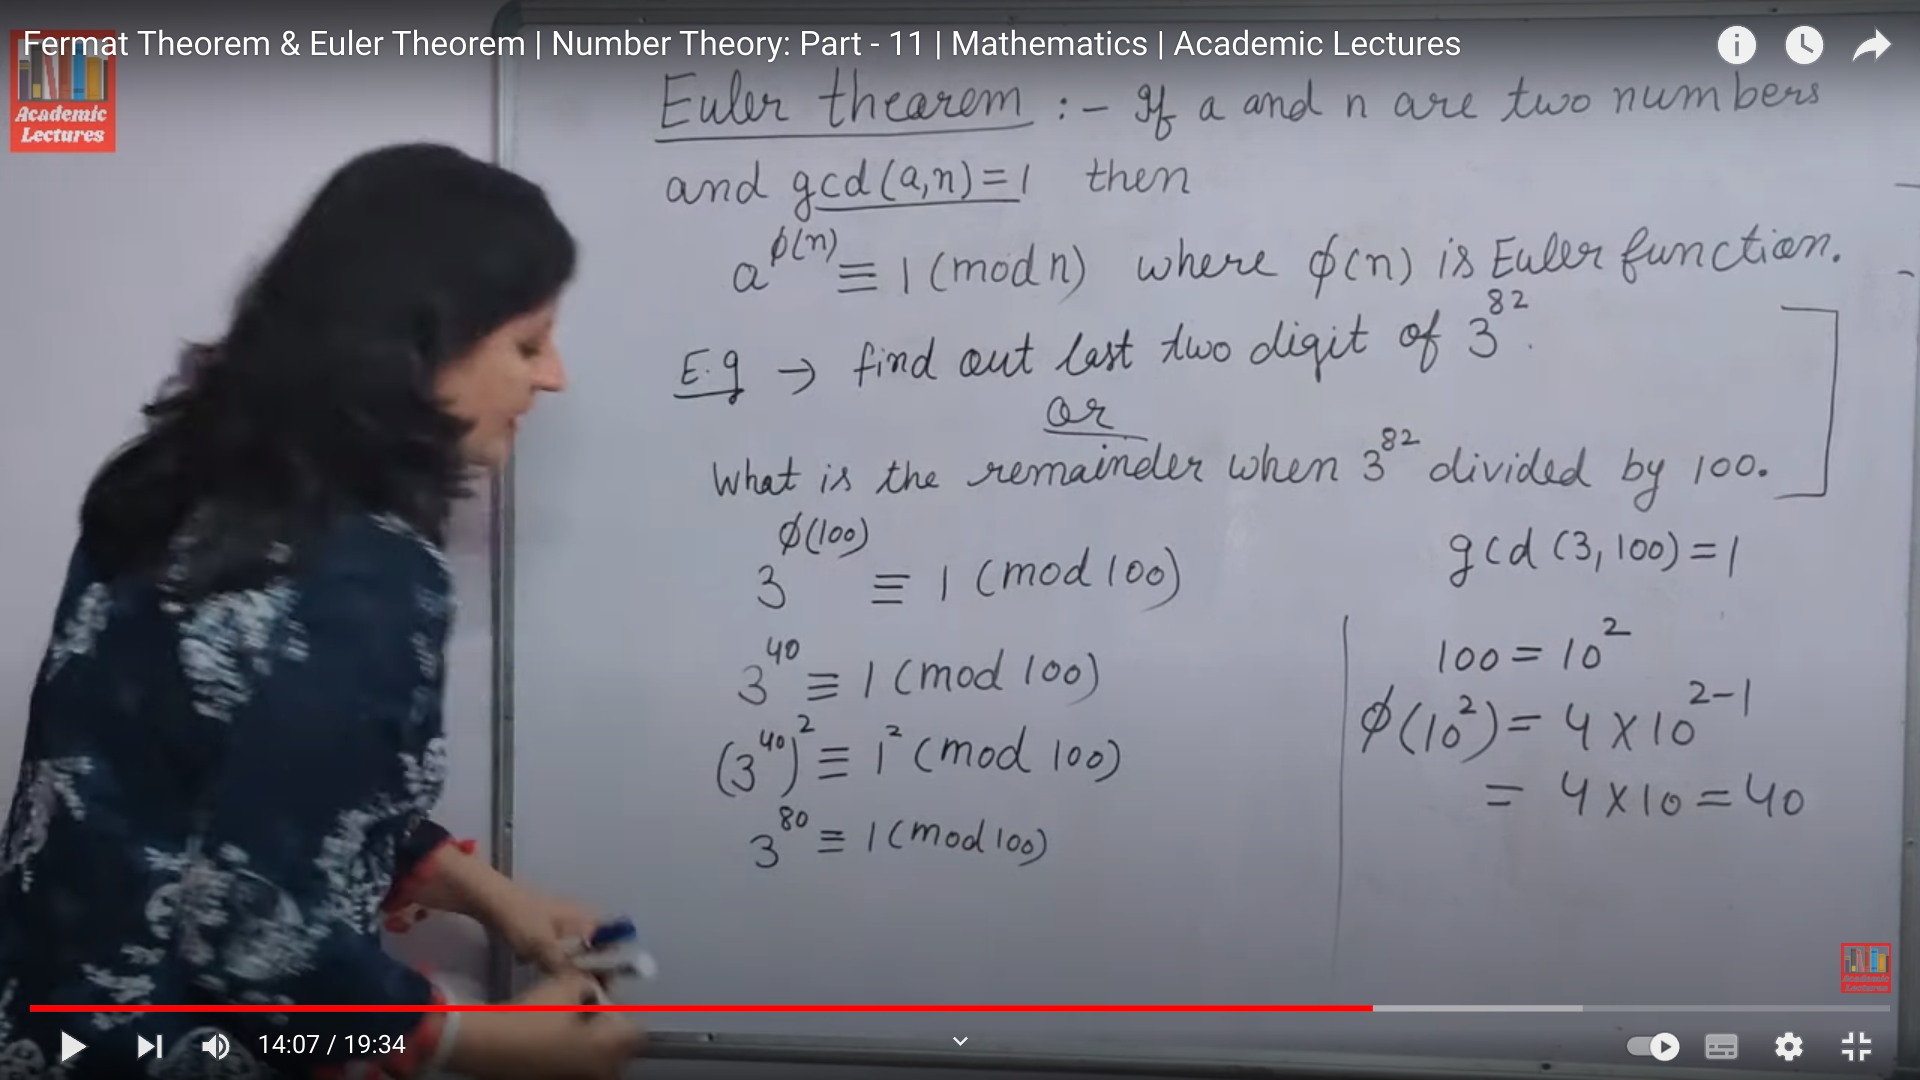 Fermat Theorem & Euler Theorem | Number Theory: Part - 11 | Mathematics | Academic Lectures
Academic
Lectures
Euler thearem :- If a and n are two numbers
and gcd(a,n)=1 then
a^ϕ(n) ≡ 1 (mod n) where ϕ(n) is Euler function.
E.g → find out last two digit of 3^82.
or
What is the remainder when 3^82 divided by 100.
3^ϕ(100) ≡ 1 (mod 100)
3^40 ≡ 1 (mod 100)
(3^40)^2 ≡ 1^2 (mod 100)
3^80 ≡ 1 (mod 100)
gcd (3,100)=1
100 = 10^2
ϕ(10^2) = 4 × 10^2-1
= 4 × 10 = 40
Academic
Lectures
14:07 / 19:34